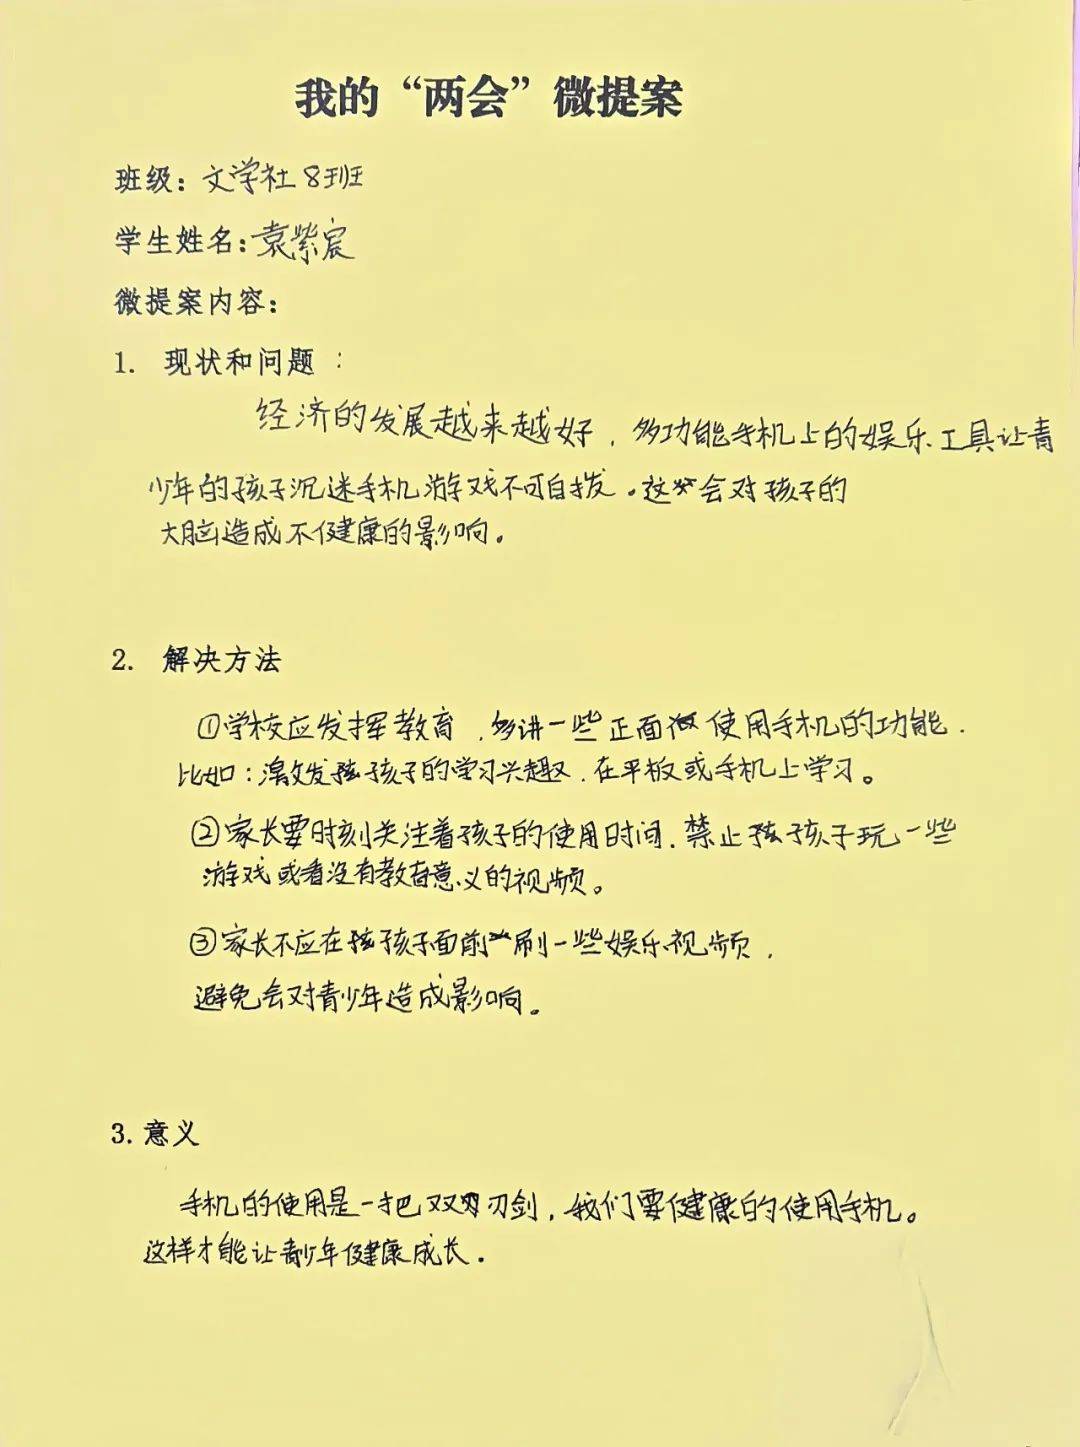 我的“两会”微提案
班级：文学社8班
学生姓名：袁紫宸
微提案内容：
1. 现状和问题：
经济的发展越来越好，多功能手机上的娱乐工具让青
少年的孩子沉迷手机游戏不可自拨。这会对孩子的
大脑造成不健康的影响。
2. 解决方法
①学校应发挥教育，多讲一些正面使用手机的功能.
比如：激发孩子的学习兴趣，在平板或手机上学习。
②家长要时刻关注着孩子的使用时间，禁止孩子玩一些
游戏或看没有教育意义的视频。
③家长不应在孩子面前刷一些娱乐视频，
避免会对青少年造成影响。
3. 意义
手机的使用是一把双刃剑，我们要健康的使用手机。
这样才能让青少年健康成长.